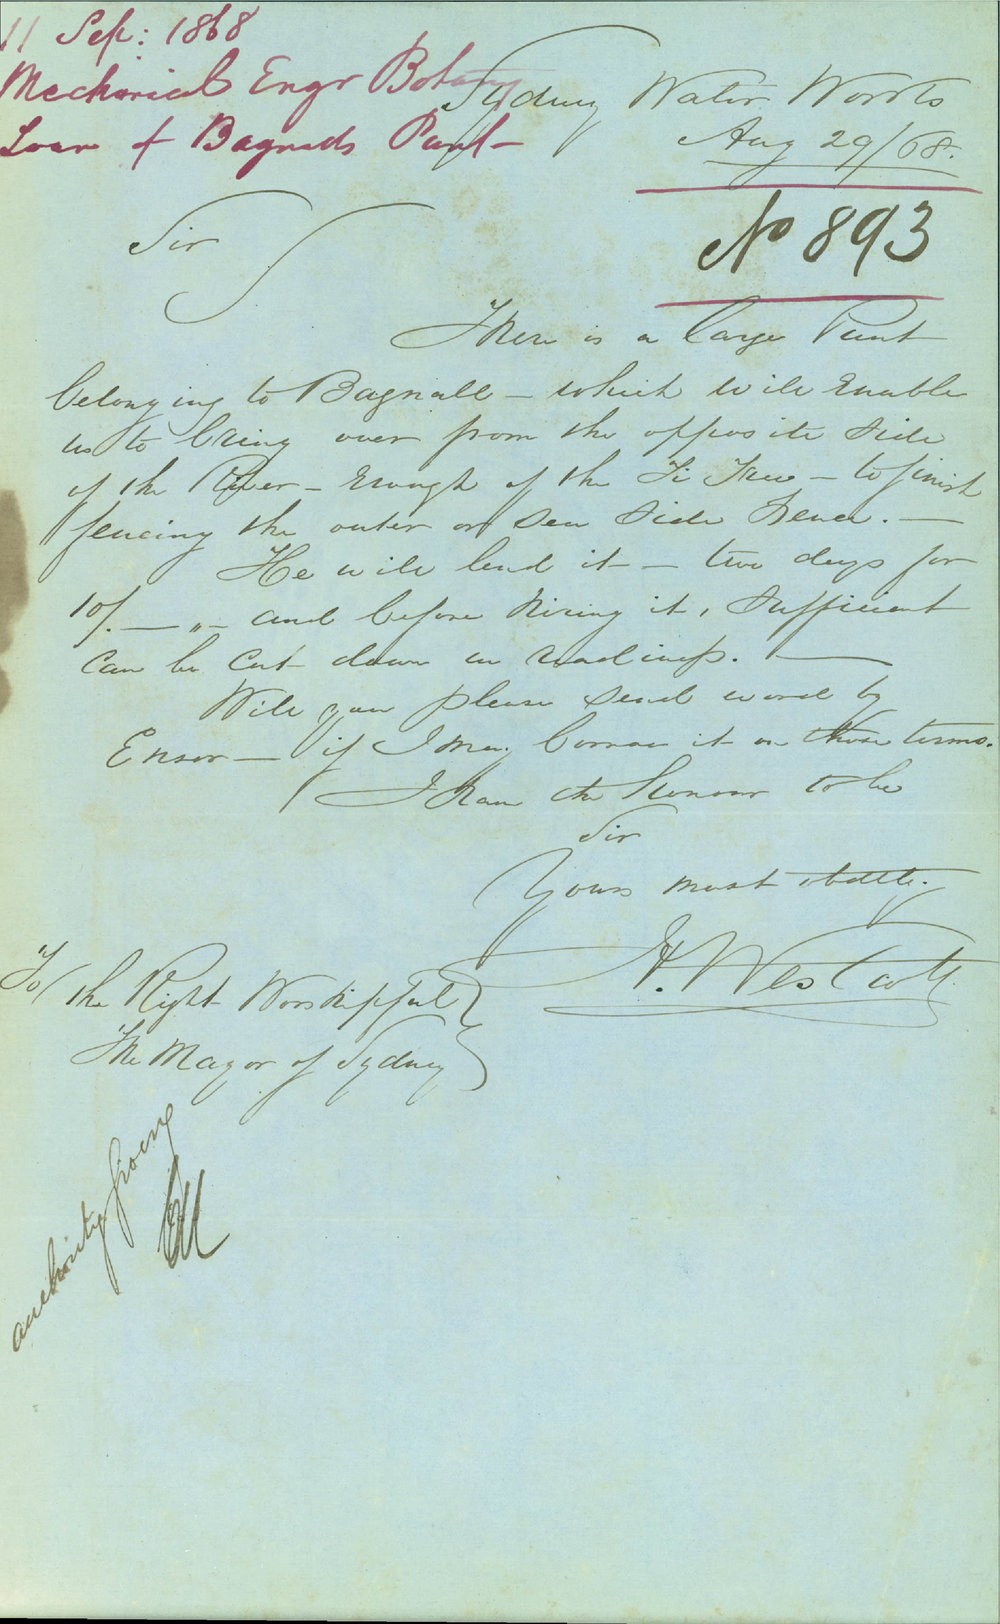 11 Sep: 1868
Mechanical Engr Botany
Loan of Bagnalls Punt
Sydney Water Works
Aug 29/68.
No 893
Sir
There is a large Punt
belonging to Bagnall – which will Enable
us to bring over from the opposite side
of the River – Enough of the Ti Tree – to finish
fencing the outer or sea side Fence. —
He will lend it – two days for
10/. — „ – and before hiring it, sufficient
can be cut down in readiness. —
Will you please send word by
Ensor — if I may borrow it on those terms.
I have the honour to be
Sir
Yours most obdtly.
H. Westcott
To the Right Worshipful
The Mayor of Sydney
authority given